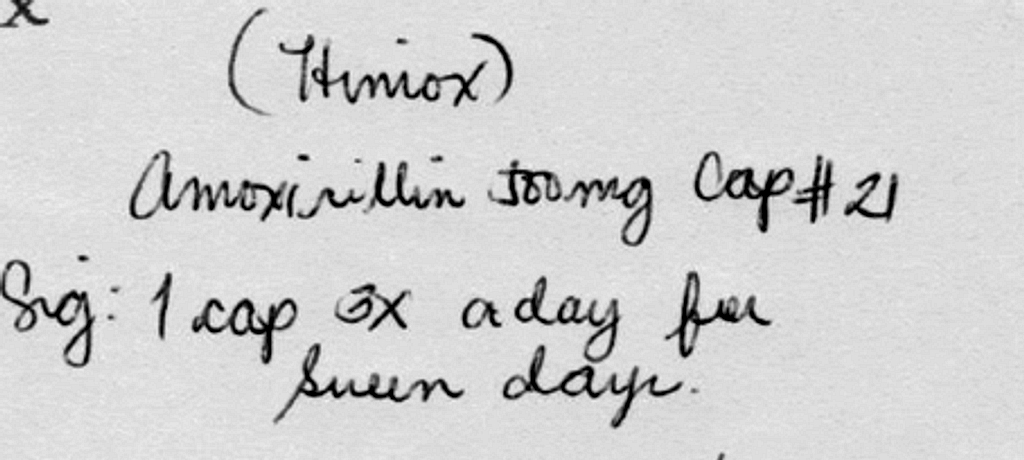 x
(Himox)
Amoxicillin 500mg Cap #21
Sig: 1 cap 3x a day for
seven days.